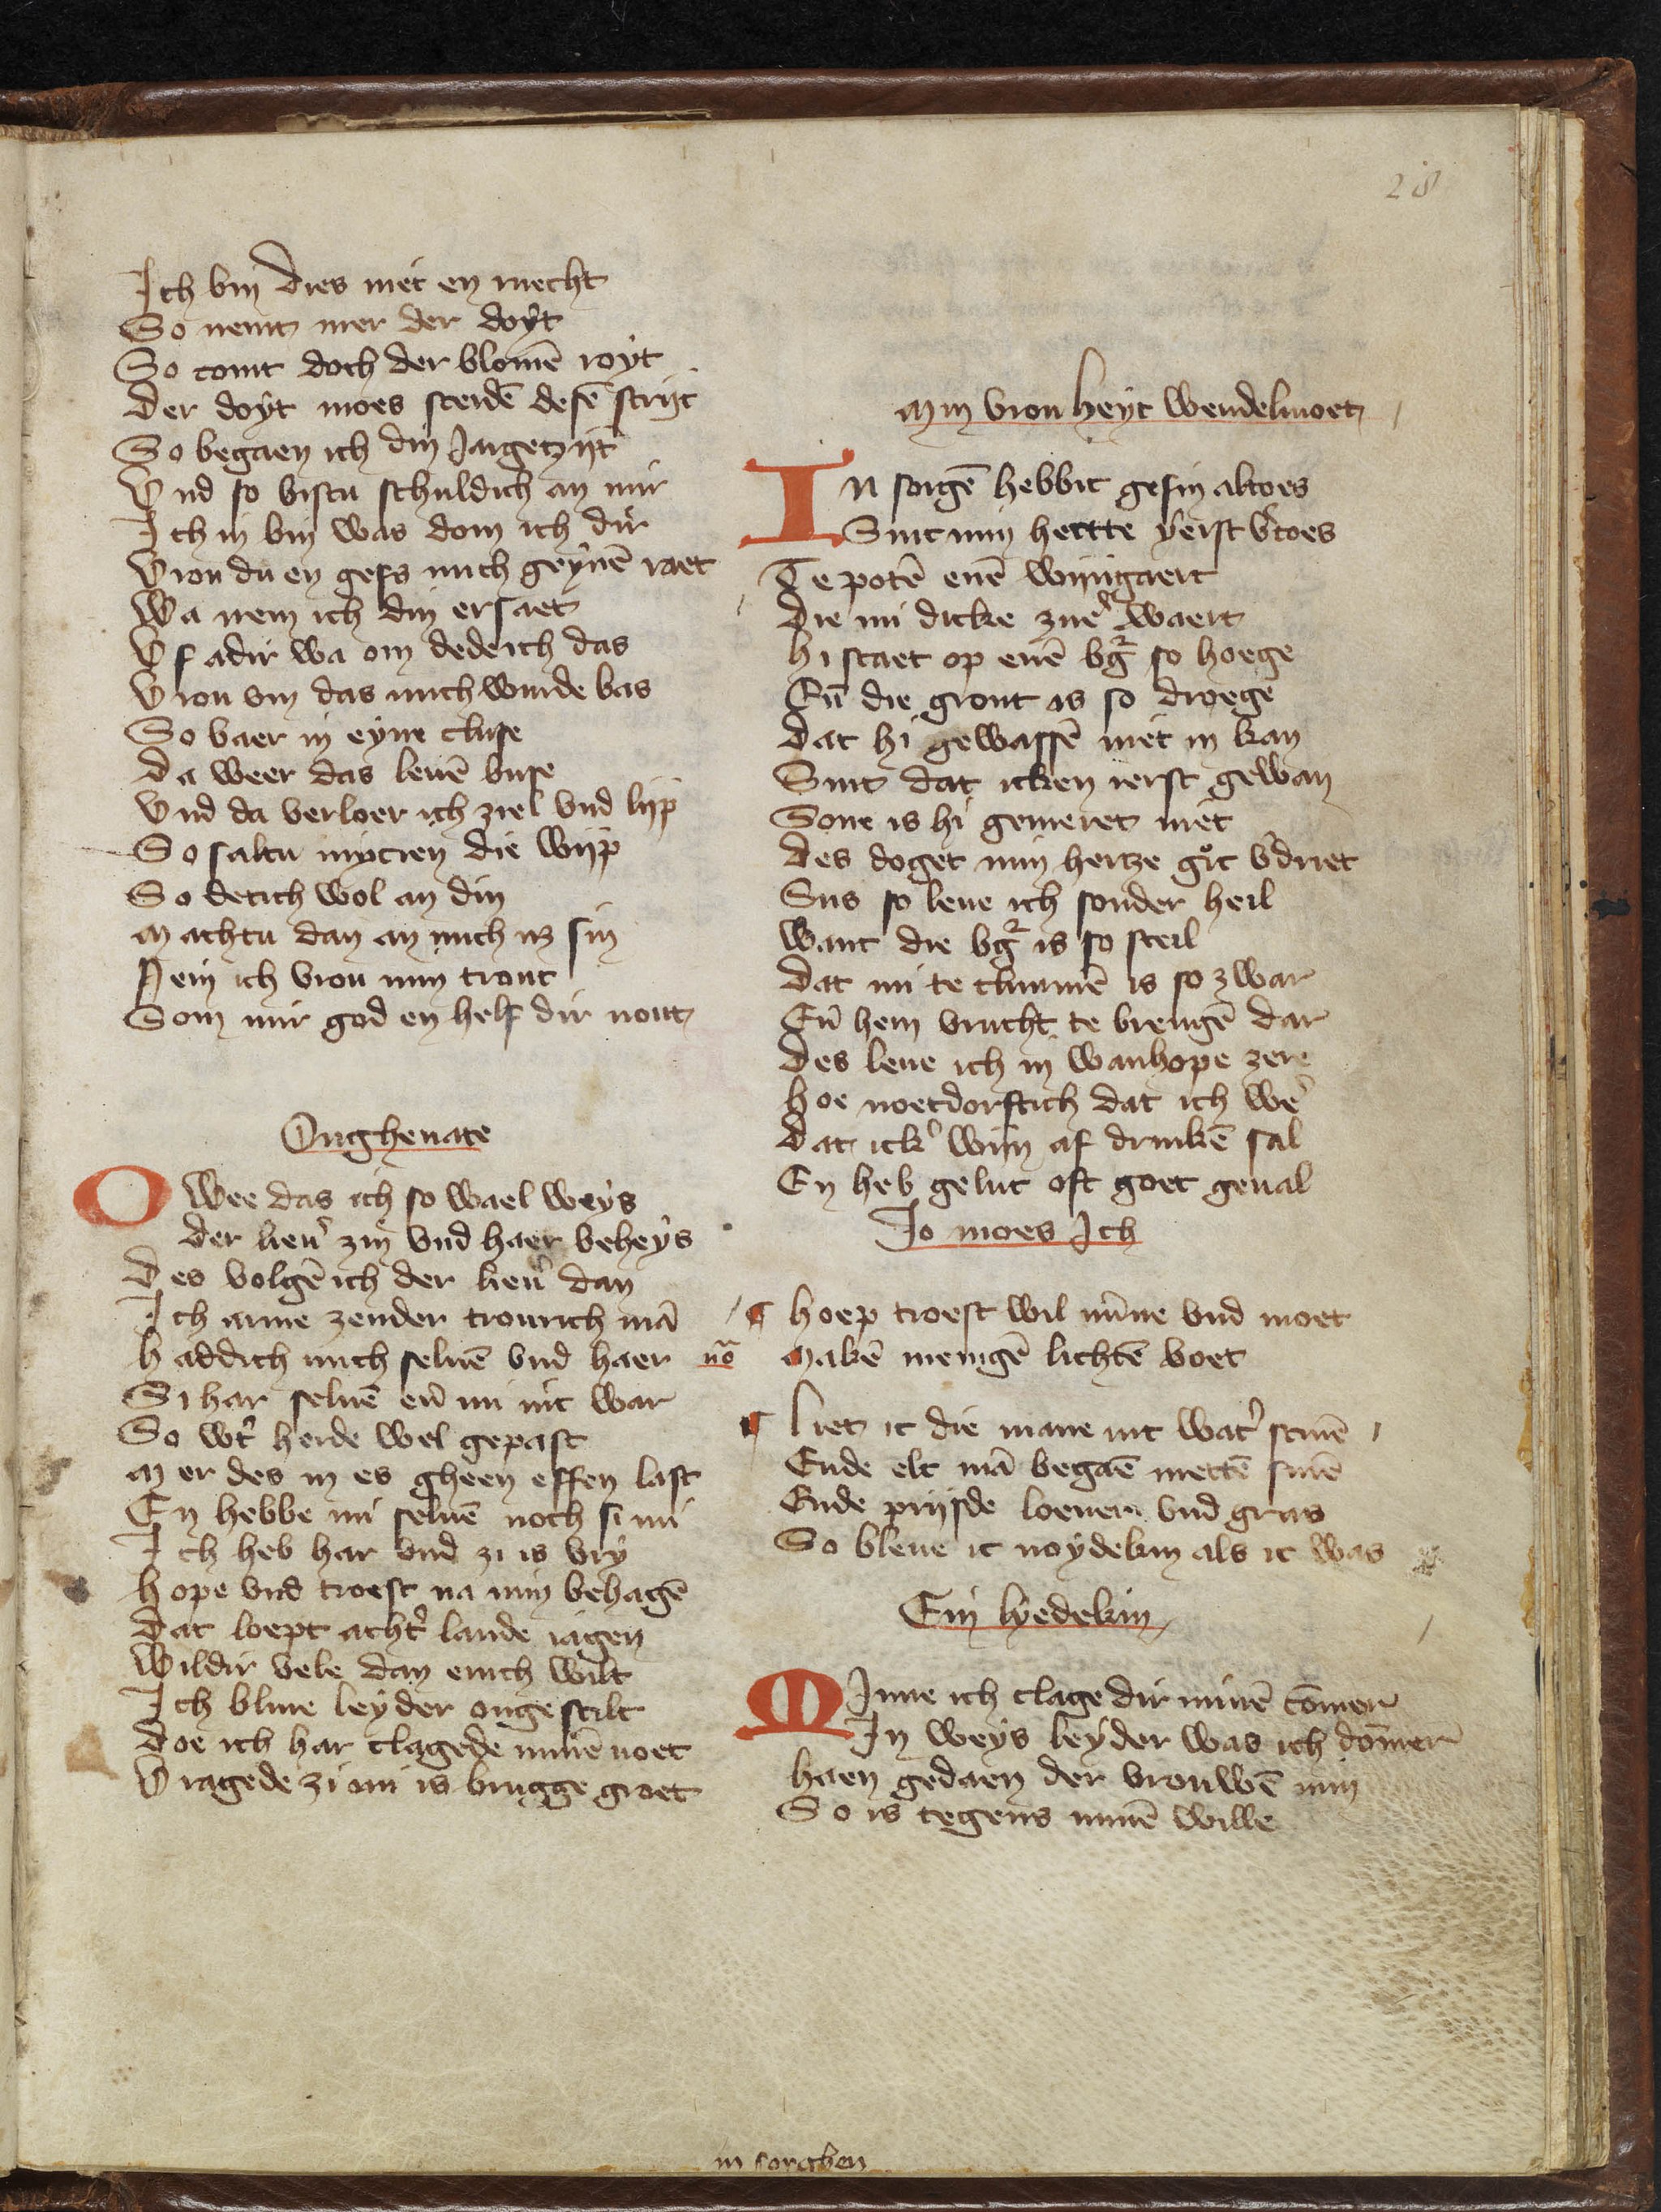 28
Ich bin dies niet en mecht
So nemt mer der doyt
So comt doch der blomē royt
Der doyt moes sceidē desē strijt
So begaen ich din Jargetzijt
Vnd so bistu schuldich an mir
Ich in bin was dom ich dir
Vrou du en gefs mich geynē raet
Wa nem ich din ersaet
Of adir wa om dede ich das
Vrou om das mich wurde bas
So vaer in eyne cluse
Da weer das leuē buse
Vnd da verloer ich ziel vnd lijp
So saltu myeten die wijp
So detich wol an din
Machtu dan an mich uz sin
Nein ich vrou min trout
Som mir god en helf dir nout
Onghenate
O Wee das ich so wael weys
Der lieu' zin vnd haer beheys
Des volgē ich der lieu' dan
Ich arme zender trourich mā
Haddich mich seluē vnd haer
Si har seluē eñ mi nit war
So wt' herde wel gepast
Mer des in es gheen effen last
En hebbe mi seluē noch si mi
Ich heb har vnd zi is vry
Hope vnd troest na min behagē
Dat loept acht' lande iagen
Wildir vele dan euch wilt
Ich bliue leyder ongestilt
Doe ich har clagede minē noet
Vragede zi oni is brugge groet
Min vrou heyt wendelmoet
In sorgē hebbic gesin altoes
Sint min hertte yerst v'coes
Te potē enē wijngaert
Die mi dicke zue' waert
Hi staet op enē bg so hoege
Eñ die gront is so droege
Dat hi gewassē niet in kan
Sint dat icken ierst gewan
Sone is hi gemeret niet
Des doget min hertze got v'driet
Sus so leue ich sonder heil
Want die bg is so steil
Dat mi te clummē is so zwar
Eñ hem vrucht te brengē dar
Des leue ich in wanhope zere
Hoe noetdorftich dat ich we'
Dat ick' wijn af drinkē sal
En heb geluc oft goet geual
Jo moes Ich
¶ Hoep troest wil mīne vnd moet
nō Makē menigē lichtē voet
¶ Liet ic die mane int wat' scinē
Ende elc mā begaē mettē sinē
Ende prijsde loeuer vnd gras
So bleue ic noydekin als ic was
Ein lyedekin
Minne ich clage dir minē cōmer
In weys leyder was ich dōmer
Haen gedaen der vrouwē min
So is tegens minē wille
in sorghen